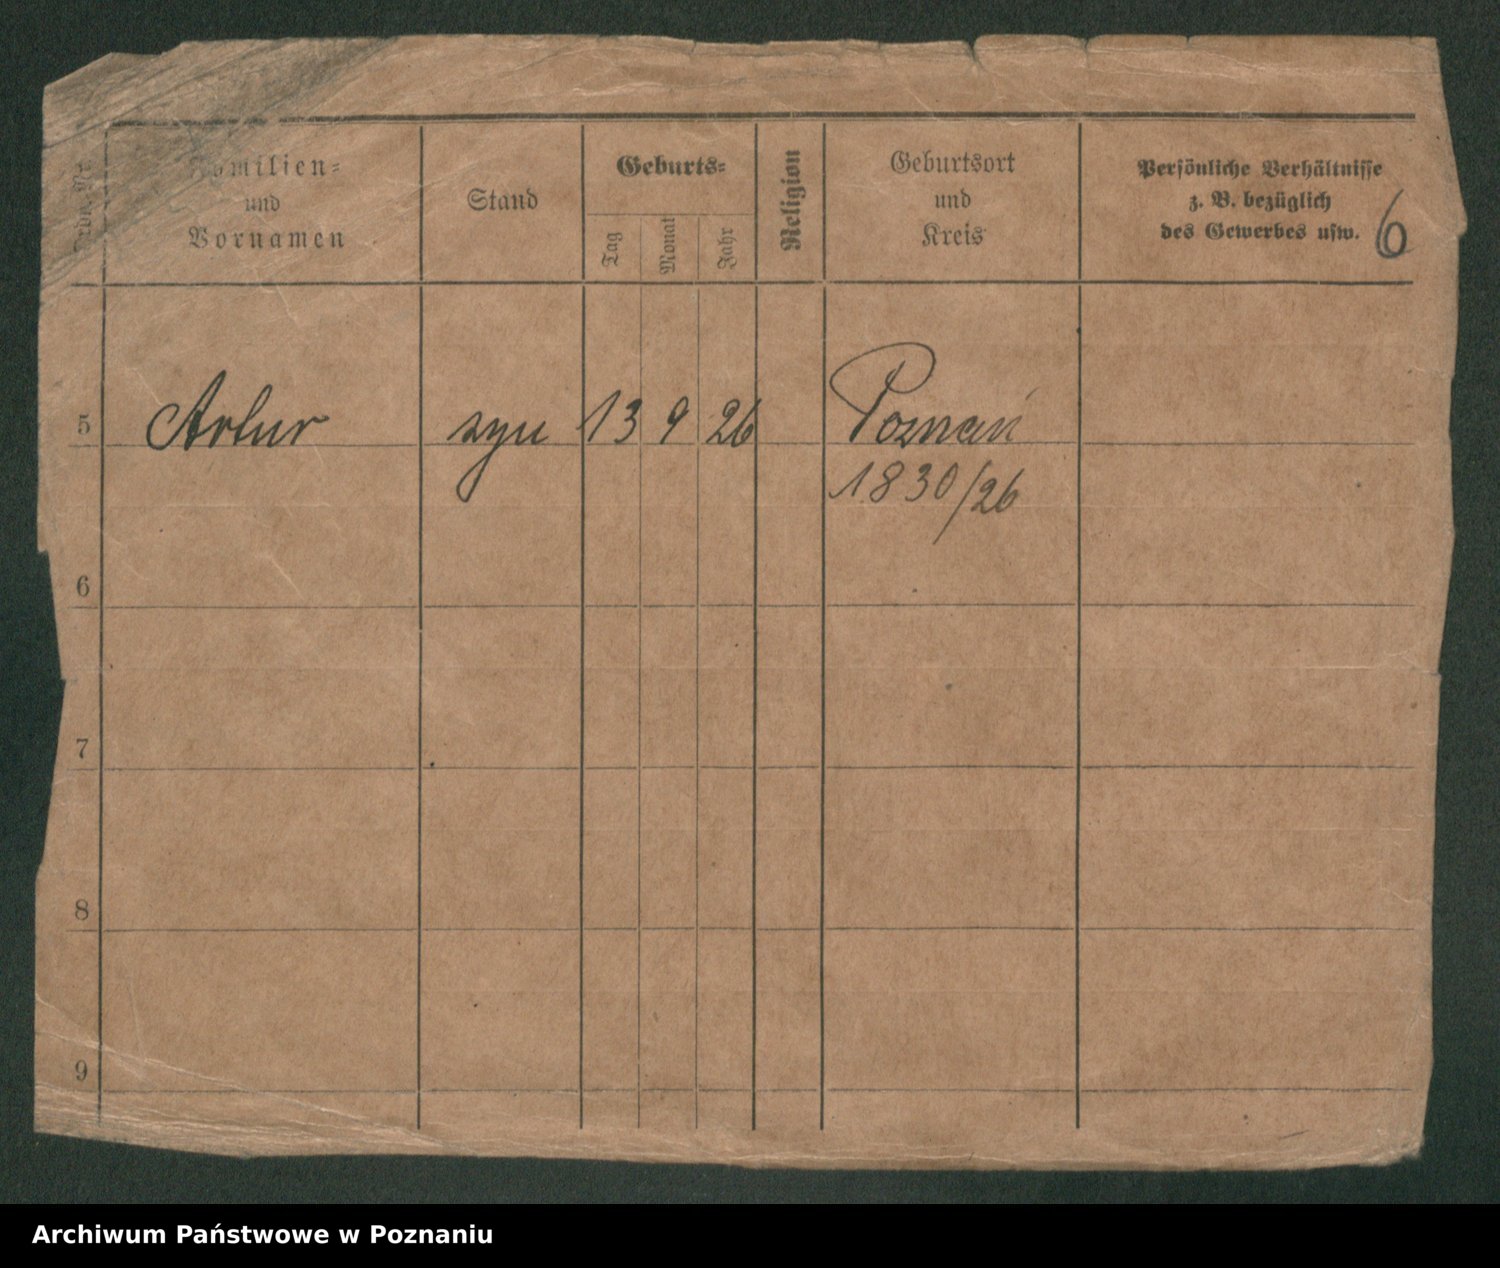 Ordn. Nr.
Familien=
und
Vornamen
Stand
Geburts=
Tag
Monat
Jahr
Religion
Geburtsort
und
Kreis
Persönliche Verhältnisse
z. B. bezüglich
des Gewerbes usw.
6
5 Artur syn 13 9 26 Poznań
1830/26
6
7
8
9
Archiwum Państwowe w Poznaniu